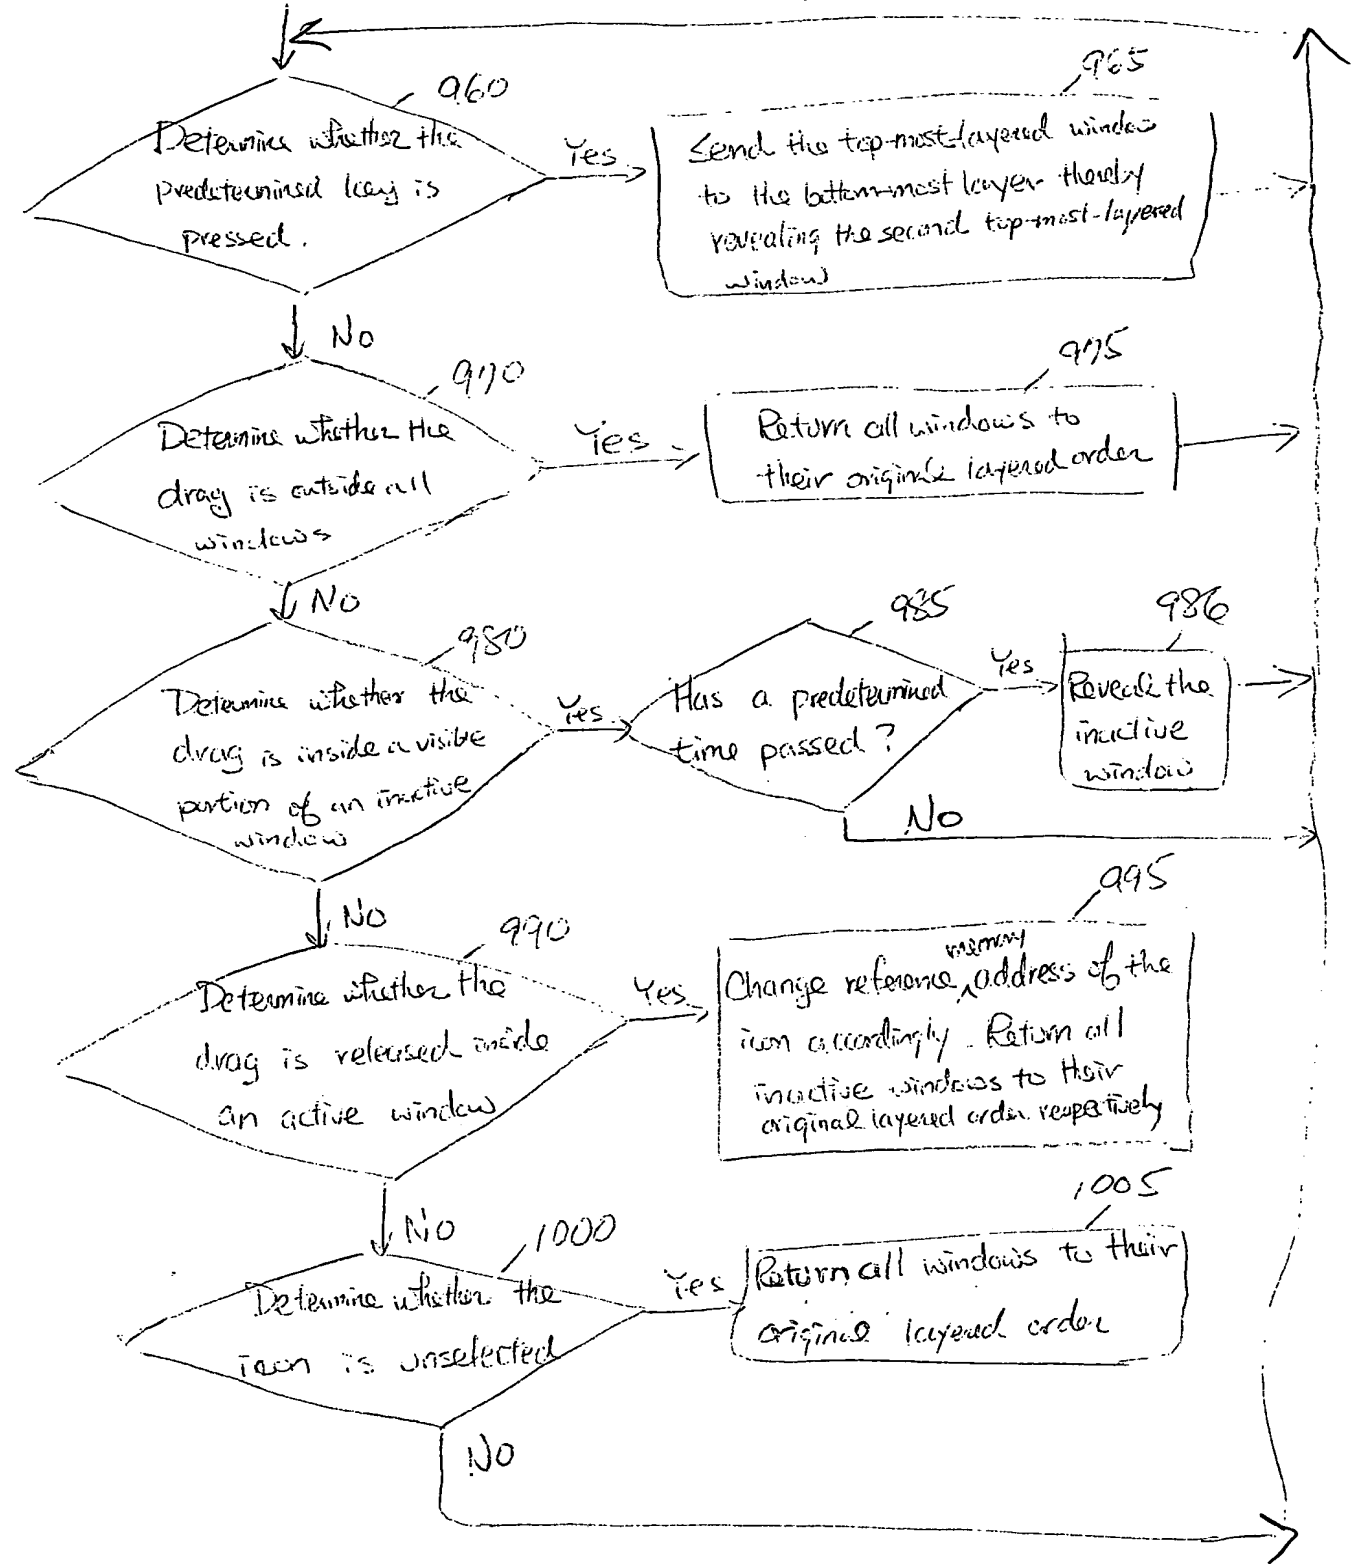 960
Determine whether the
predetermined key is
pressed.
Yes
965
Send the top-most-layered window
to the bottom-most layer thereby
revealing the second top-most-layered
window
No
970
Determine whether the
drag is outside all
windows
Yes
975
Return all windows to
their original layered order
No
980
Determine whether the
drag is inside a visible
portion of an inactive
window
Yes
985
Has a predetermined
time passed?
Yes
986
Reveal the
inactive
window
No
No
990
Determine whether the
drag is released inside
an active window
Yes
995
memory
Change reference address of the
icon accordingly. Return all
inactive windows to their
original layered order respectively
No
1000
Determine whether the
icon is unselected
Yes
1005
Return all windows to their
original layered order
No